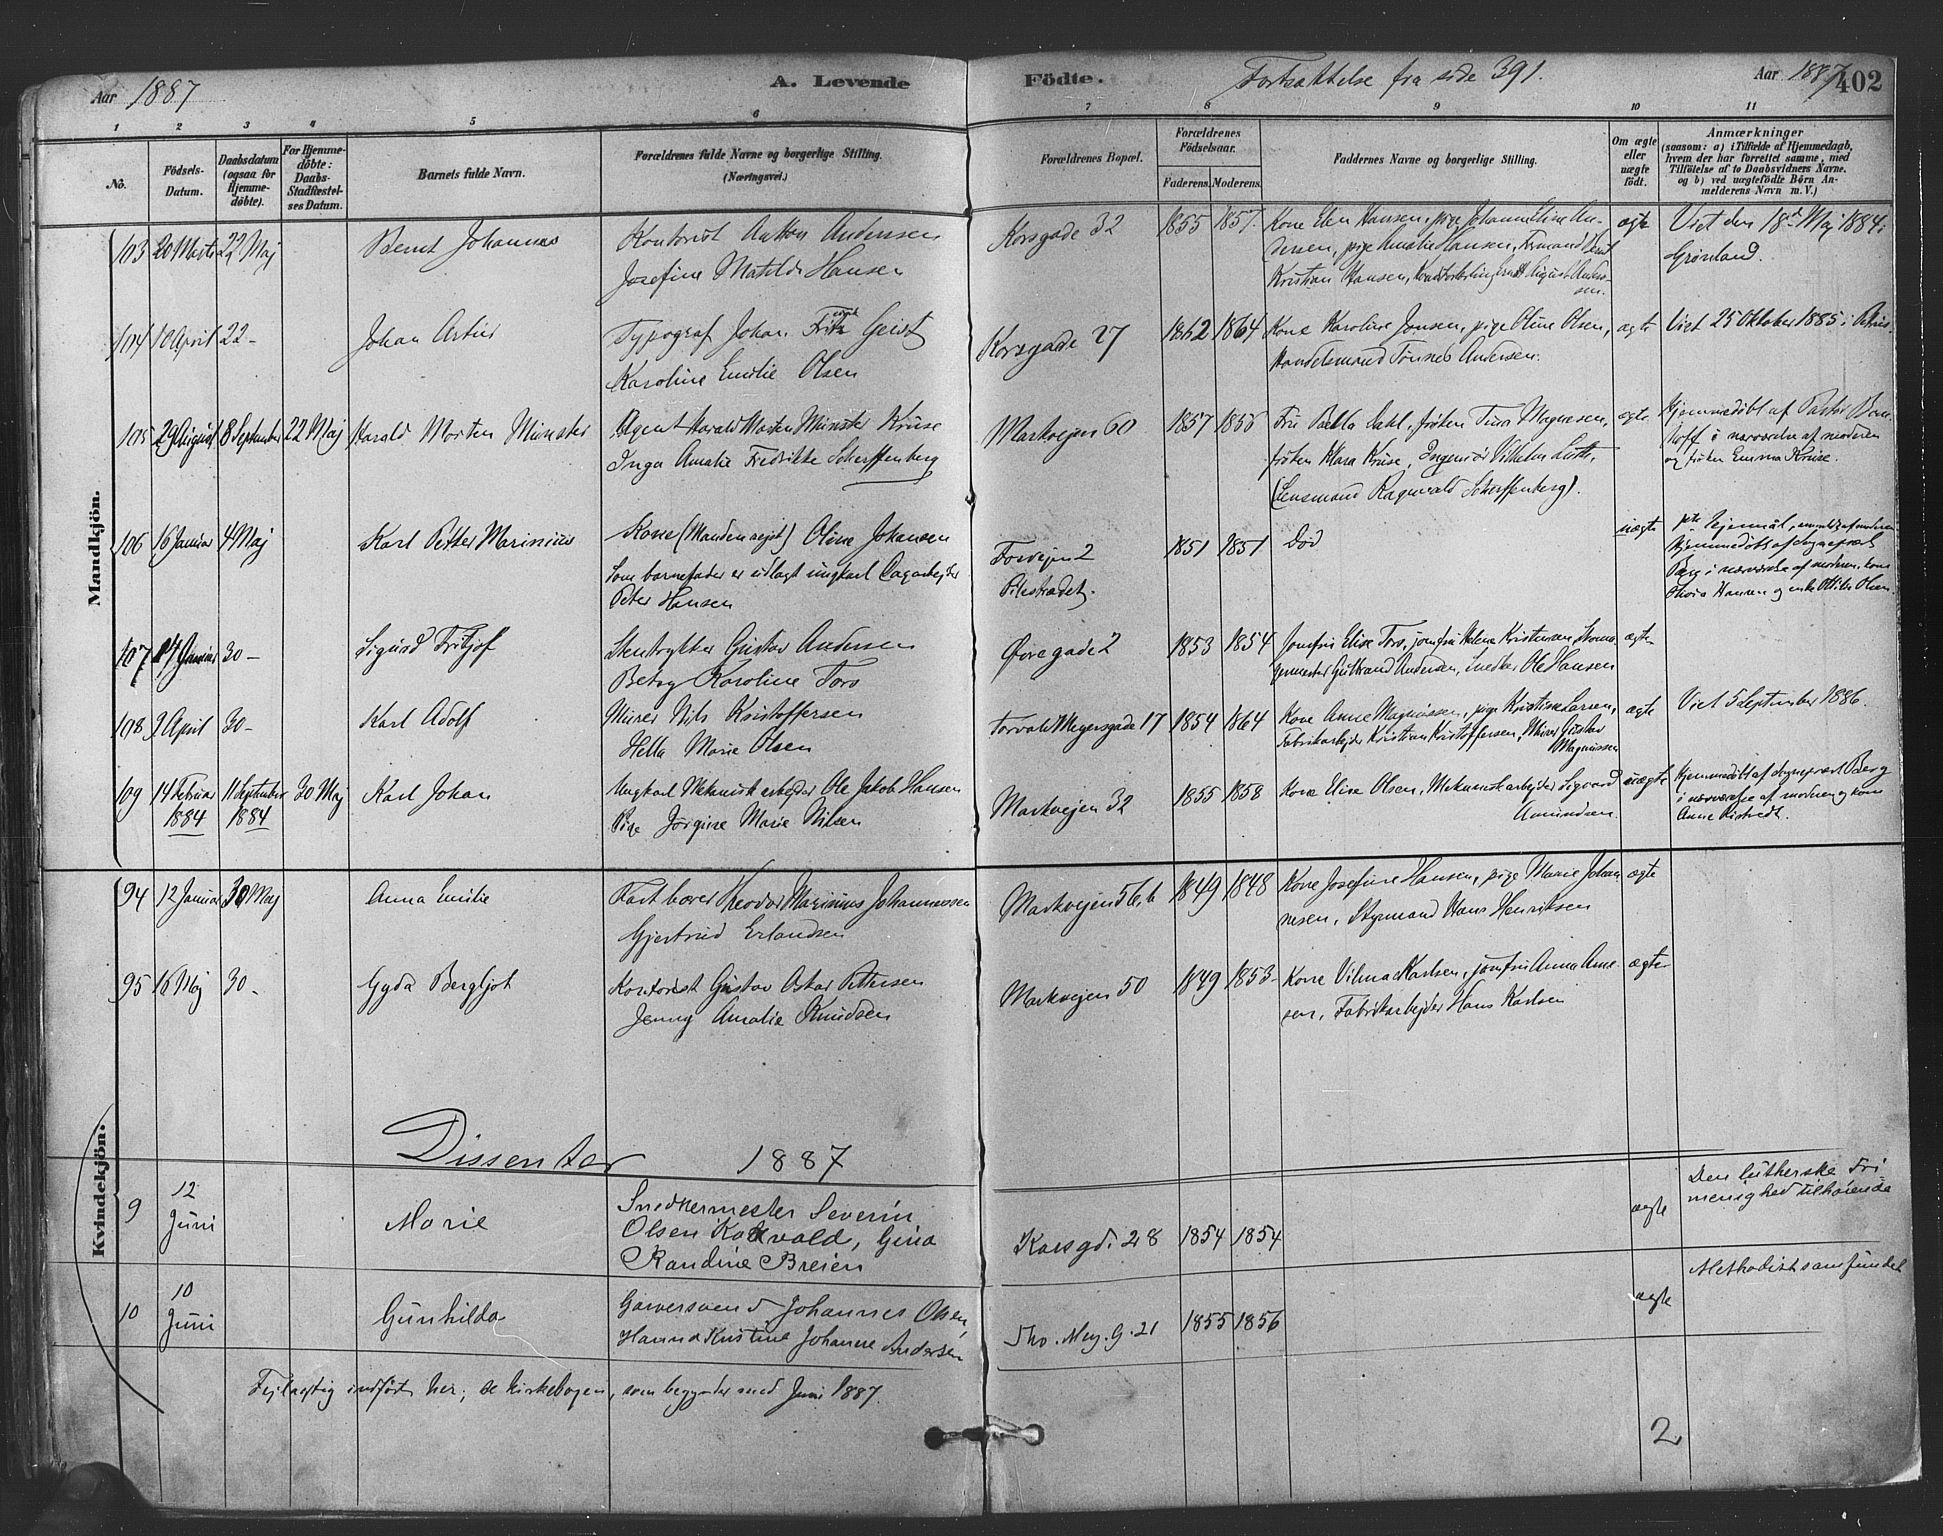 Aar 1887 A. Levende Födte. Fortsættelse fra side 391. Aar 1887 402
1 2 3 4 5 6 7 8 9 10 11
No.
Födsels-Datum.
Daabsdatum (ogsaa for Hjemme-döbte).
For Hjemme-döbte: Daabs-Stadfæstel-ses Datum.
Barnets fulde Navn.
Forældrenes fulde Navne og borgerlige Stilling. (Næringsvei.)
Forældrenes Bopæl.
Forældrenes Födselsaar.
Faderens. Moderens.
Faddernes Navne og borgerlige Stilling.
Om ægte eller uægte födt.
Anmærkninger
(saasom: a) i Tilfælde af Hjemmedaab,
hvem der har forrettet samme, med
Tilföielse af to Daabsvidners Navne,
og b) ved uægtefödte Börn An-
melderens Navn m. V.)
Mandkjön.
103 20 Marts 22 Maj Bernt Johannes Kontorist Anton Andersen Korsgade 32 1855 1857. Kone Elen Hansen, pige Johanne Elise An- ægte Viet den 18d Maj 1884 i
Josefine Matilde Hansen dersen, pige Amalie Hansen, Formand Bernt Grønland.
Kristian Hansen, August Anders-
sen.
104 10 April 22 - Johan Artur Typograf Johan Geist Korsgade 27 1862 1864 Kone Karoline Jonsen, pige Oline Olsen, ægte Viet 25 Oktober 1885 i
Karoline Emilie Olsen Handelsmand Tønnes Andersen.
105 29 August 8 September 22 Maj Harald Morten Münster Agent Harald Morten Münster Kruse Markvejen 60 1857 1856 Fru Dahl, frøken Tina Magnesen, ægte Hjemmedøbt af Pastor
Inga Amalie Fredrikke Scharffenberg frøken Klara Kruse, Ingeniør Vilhelm i nærværelse af moderen
(Lensmand Ragnvald Scharffenberg). og frøken Emma Kruse.
106 16 Januar 4 Maj Karl Petter Marinius Kone (Manden rejst) Oline Johansen Forvejen 2 1851 1851 Død uægte
Som barnefader er udlagt ungkarl Pilestrædet. Hjemmedøbt af Sogneprest
Peter Hansen Berg i nærværelse af moderen, kone
Hansen og enke Otilie Olsen.
107 Januar 30 - Sigurd Fritjof Stentrykker Gustav Andersen Øvre gade 2 1853 1854 Jomfru Elise Toro, jomfru Helene Kristensen ægte
Betsy Karoline Toro Gulbrand Andersen, Snedker Ole Hansen
108 9 April 30 - Karl Adolf Murer Nils Kristoffersen Torvald Meyersgade 17 1854 1864 Kone Anne Magnussen, pige Kristine Larsen, ægte Viet 5 September 1886.
Hella Marie Olsen Fabrikarbejder Kristian Kristoffersen, Murer Gustav
Magnussen
109 14 Februar 11 September 30 Maj Karl Johan Ungkarl Mekanisk arbejder Ole Jakob Hansen Markvejen 32 1855 1858 Kone Elise Olsen, Mekanisk arbejder Sigvard uægte Hjemmedøbt af Sogneprest Berg
1884 1884 Pige Jørgine Marie Nilsen Amundsen. i nærværelse af moderen og kone
Anne
Kvindekjön.
94 12 Januar 30 Maj Anna Emilie Theodor Marinius Johannessen Markvejen 56,b 1849 1848 Kone Josefine Hansen, pige Marie Johan- ægte
Gjertrud Erlandsen nesen, Styrmand Hans Henriksen
95 16 Maj 30 - Gyda Bergljot Kontorist Gustav Oskar Pettersen Markvejen 50 1849 1853 Kone Vilma Karlsen, jomfru Anna Ame- ægte
Jenny Amalie Knudsen sen, Fabrikarbejder Hans Karlsen
Dissentar 1887
9 12 Juni Marie Snedkermester Severin Korsgd. 28 1854 1854 ægte Den lutherske Fri
Olsen, Gina menighed tilhørende
Randine Breien
10 10 Juni Gunhilda Garversvend Johannes Olsen, Tho. Mey. G. 21 1855 1856 ægte Methodistsamfundet
Hanna Kristine Johanne Andersen
Fejlagtig indført her; se kirkebogen, som begynder med Juni 1887.
2